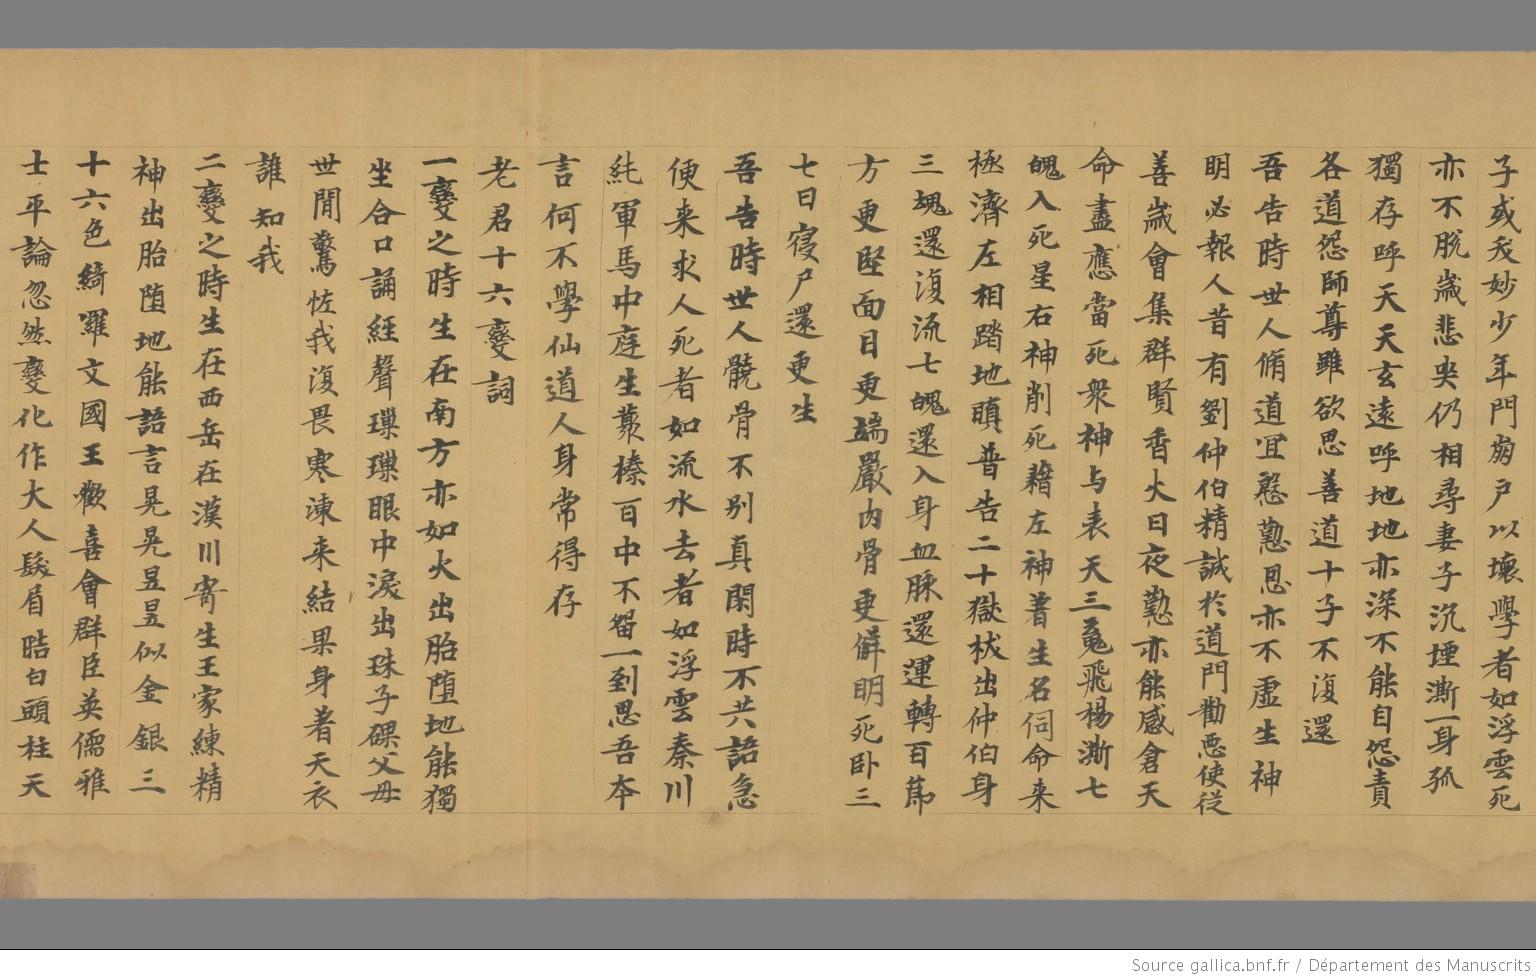 子或夭妙少年門崩戶以壞學者如浮雲死
亦不脫歳悲央仍相尋妻子沉堙澌一身孤
獨存呼天天玄遠呼地地亦深不能自怨責
各道怨師尊雖欲思善道十子不復還
吾告時世人脩道宜慇懃恩亦不虛生神
明必報人昔有劉仲伯精誠於道門勸惡使從
善歳會集群賢香火日夜懃亦能感倉天
命盡應當死衆神与表天三䰟飛楊澌七
魄入死星右神削死籍左神著生名伺命来
極濟左相踏地瞋普告二十獄栿出仲伯身
三䰟還復流七魄還入身血脉還運轉百莭
方更堅面目更端嚴肉骨更鮮明死卧三
七日寑尸還更生
吾告時世人髐骨不别真閑時不共語急
便来求人死者如流水去者如浮雲秦川
純軍馬中庭生藂榛百中不留一到思吾本
言何不學仙道人身常得存
老君十六變詞
一變之時生在南方亦如火出胎墮地能獨
坐合口誦經聲璅璅眼中淚出珠子碨父母
世間驚恠我復畏寒凍来結果身著天衣
誰知我
二變之時生在西岳在漢川寄生王家練精
神出胎墮地能語言晃晃昱昱似金銀三
十六色綺羅文國王歡喜會群臣英儒雅
士平論忽然變化作大人髮眉皓白頭柱天
Source gallica.bnf.fr / Département des Manuscrits